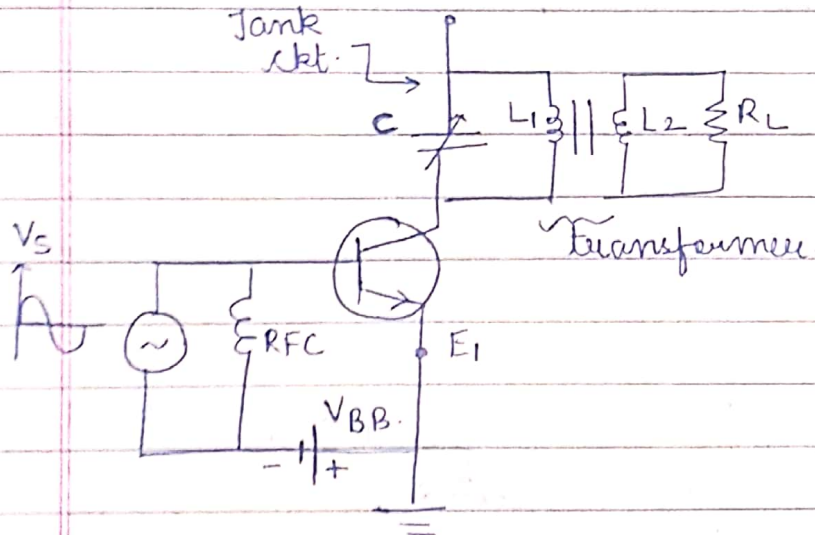 Tank
ckt.
C
L1
L2
RL
Transformer
Vs
~
RFC
E1
VBB.
- +